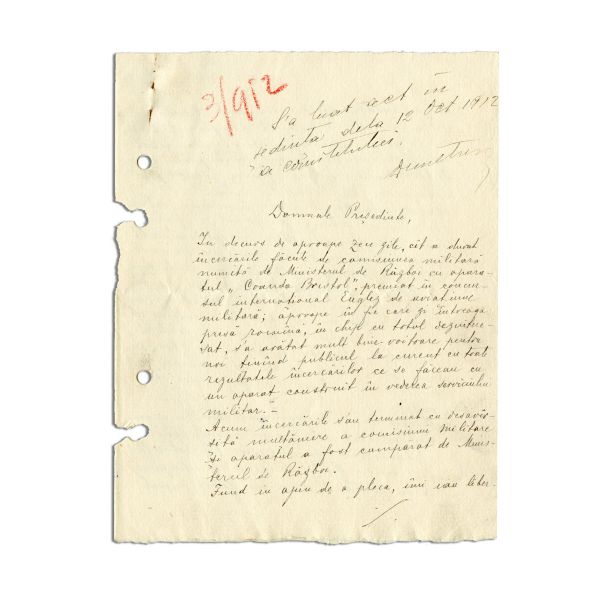 3/912
S'a luat act în
ședința dela 12 Oct 1912
a constituției.
Domnule Președinte,
In decurs de aproape zece zile, cît a durat
încercările făcute de comisiunea militară
numită de Ministerul de Război cu apara-
tul „Coanda Bristol", premiat în concur-
sul internațional Englez de aviațiune
militară; aproape în fie care zi întreaga
presă română, în chip cu totul dezintere-
sat, s'a arătat mult bine-voitoare pentru
noi ținînd publicul la curent cu toate
rezultatele încercărilor ce se făceau cu
un aparat construit în vederea serviciului
militar.–
Acum încercările s'au terminat cu desăvîr-
șită mulțămire a comisiunii militare
și aparatul a fost cumpărat de Minis-
terul de Război.
Fiind în ajun de a pleca, îmi iau liber-
./.